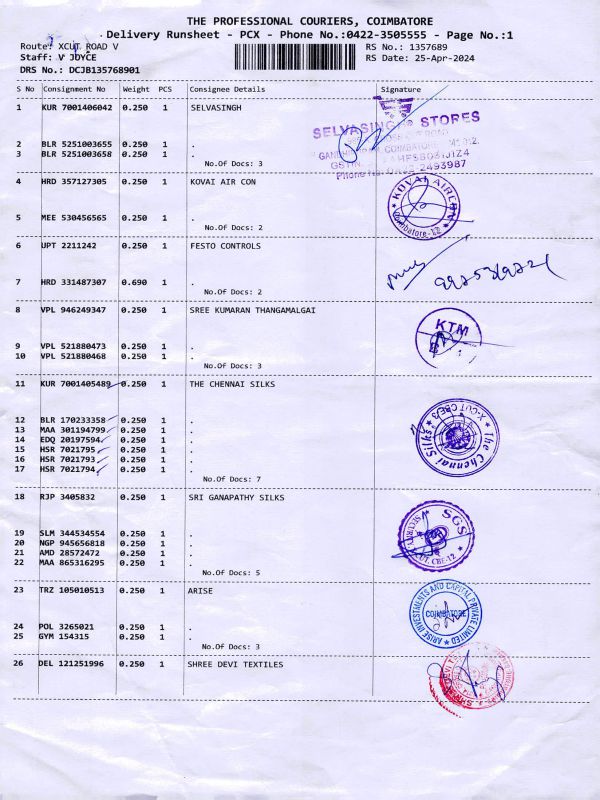 THE PROFESSIONAL COURIERS, COIMBATORE
Delivery Runsheet - PCX - Phone No.:0422-3505555 - Page No.:1
Route: XCUT ROAD V
RS No.: 1357689
Staff: V JOYCE
RS Date: 25-Apr-2024
DRS No.: DCJB135768901
S No Consignment No Weight PCS Consignee Details Signature
1 KUR 7001406042 0.250 1 SELVASINGH
SELVASINGH STORES
2 BLR 5251003655 0.250 1 .
3 BLR 5251003658 0.250 1 .
No.Of Docs: 3
4 HRD 357127305 0.250 1 KOVAI AIR CON
KOVAI AIRCON
Coimbatore-12
5 MEE 530456565 0.250 1 .
No.Of Docs: 2
6 UPT 2211242 0.250 1 FESTO CONTROLS
7 HRD 331487307 0.690 1 .
No.Of Docs: 2
8 VPL 946249347 0.250 1 SREE KUMARAN THANGAMALGAI
KTM
9 VPL 521880473 0.250 1 .
10 VPL 521880468 0.250 1 .
No.Of Docs: 3
11 KUR 7001405489 0.250 1 THE CHENNAI SILKS
The Chennai Silks
X-CUT CBE/3
12 BLR 170233358 0.250 1 .
13 MAA 301194799 0.250 1 .
14 EDQ 20197594 0.250 1 .
15 HSR 7021795 0.250 1 .
16 HSR 7021793 0.250 1 .
17 HSR 7021794 0.250 1 .
No.Of Docs: 7
18 RJP 3405832 0.250 1 SRI GANAPATHY SILKS
SGS
SECURITY
CBE-12
19 SLM 344534554 0.250 1 .
20 NGP 945656818 0.250 1 .
21 AMD 28572472 0.250 1 .
22 MAA 865316295 0.250 1 .
No.Of Docs: 5
23 TRZ 105010513 0.250 1 ARISE
ARISE INVESTMENTS AND CAPITAL PRIVATE LIMITED
COIMBATORE
24 POL 3265021 0.250 1 .
25 GYM 154315 0.250 1 .
No.Of Docs: 3
26 DEL 121251996 0.250 1 SHREE DEVI TEXTILES